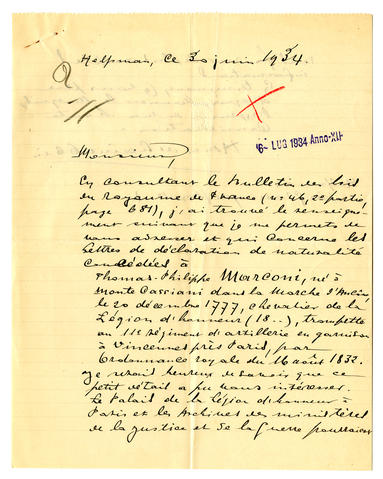 Helfman, Ce 30 juin 1934.
6- LUG 1934 Anno XII
Monsieur,
En consultant le Bulletin des lois
du royaume de France (no: 46, 2e partie,
page 681), j'ai trouvé le renseigne-
ment suivant que je me permets de
vous adresser et qui concerne les
Lettres de déclaration de naturalité
concédées à
Thomas-Philippe Marconi, né à
Monte Cassiani dans la Marche d'Ancône
le 20 décembre 1777, chevalier de la
Légion d'honneur (18..), trompette
au 11e régiment d'artillerie en garnison
à Vincennes près Paris, par
Ordonnance royale du 16 août 1832.
Je serais heureux de savoir que ce
petit détail a pu vous intéresser.
Le Palais de la Légion d'honneur à
Paris et les Archives des ministères
de la Justice et de la Guerre pourraient